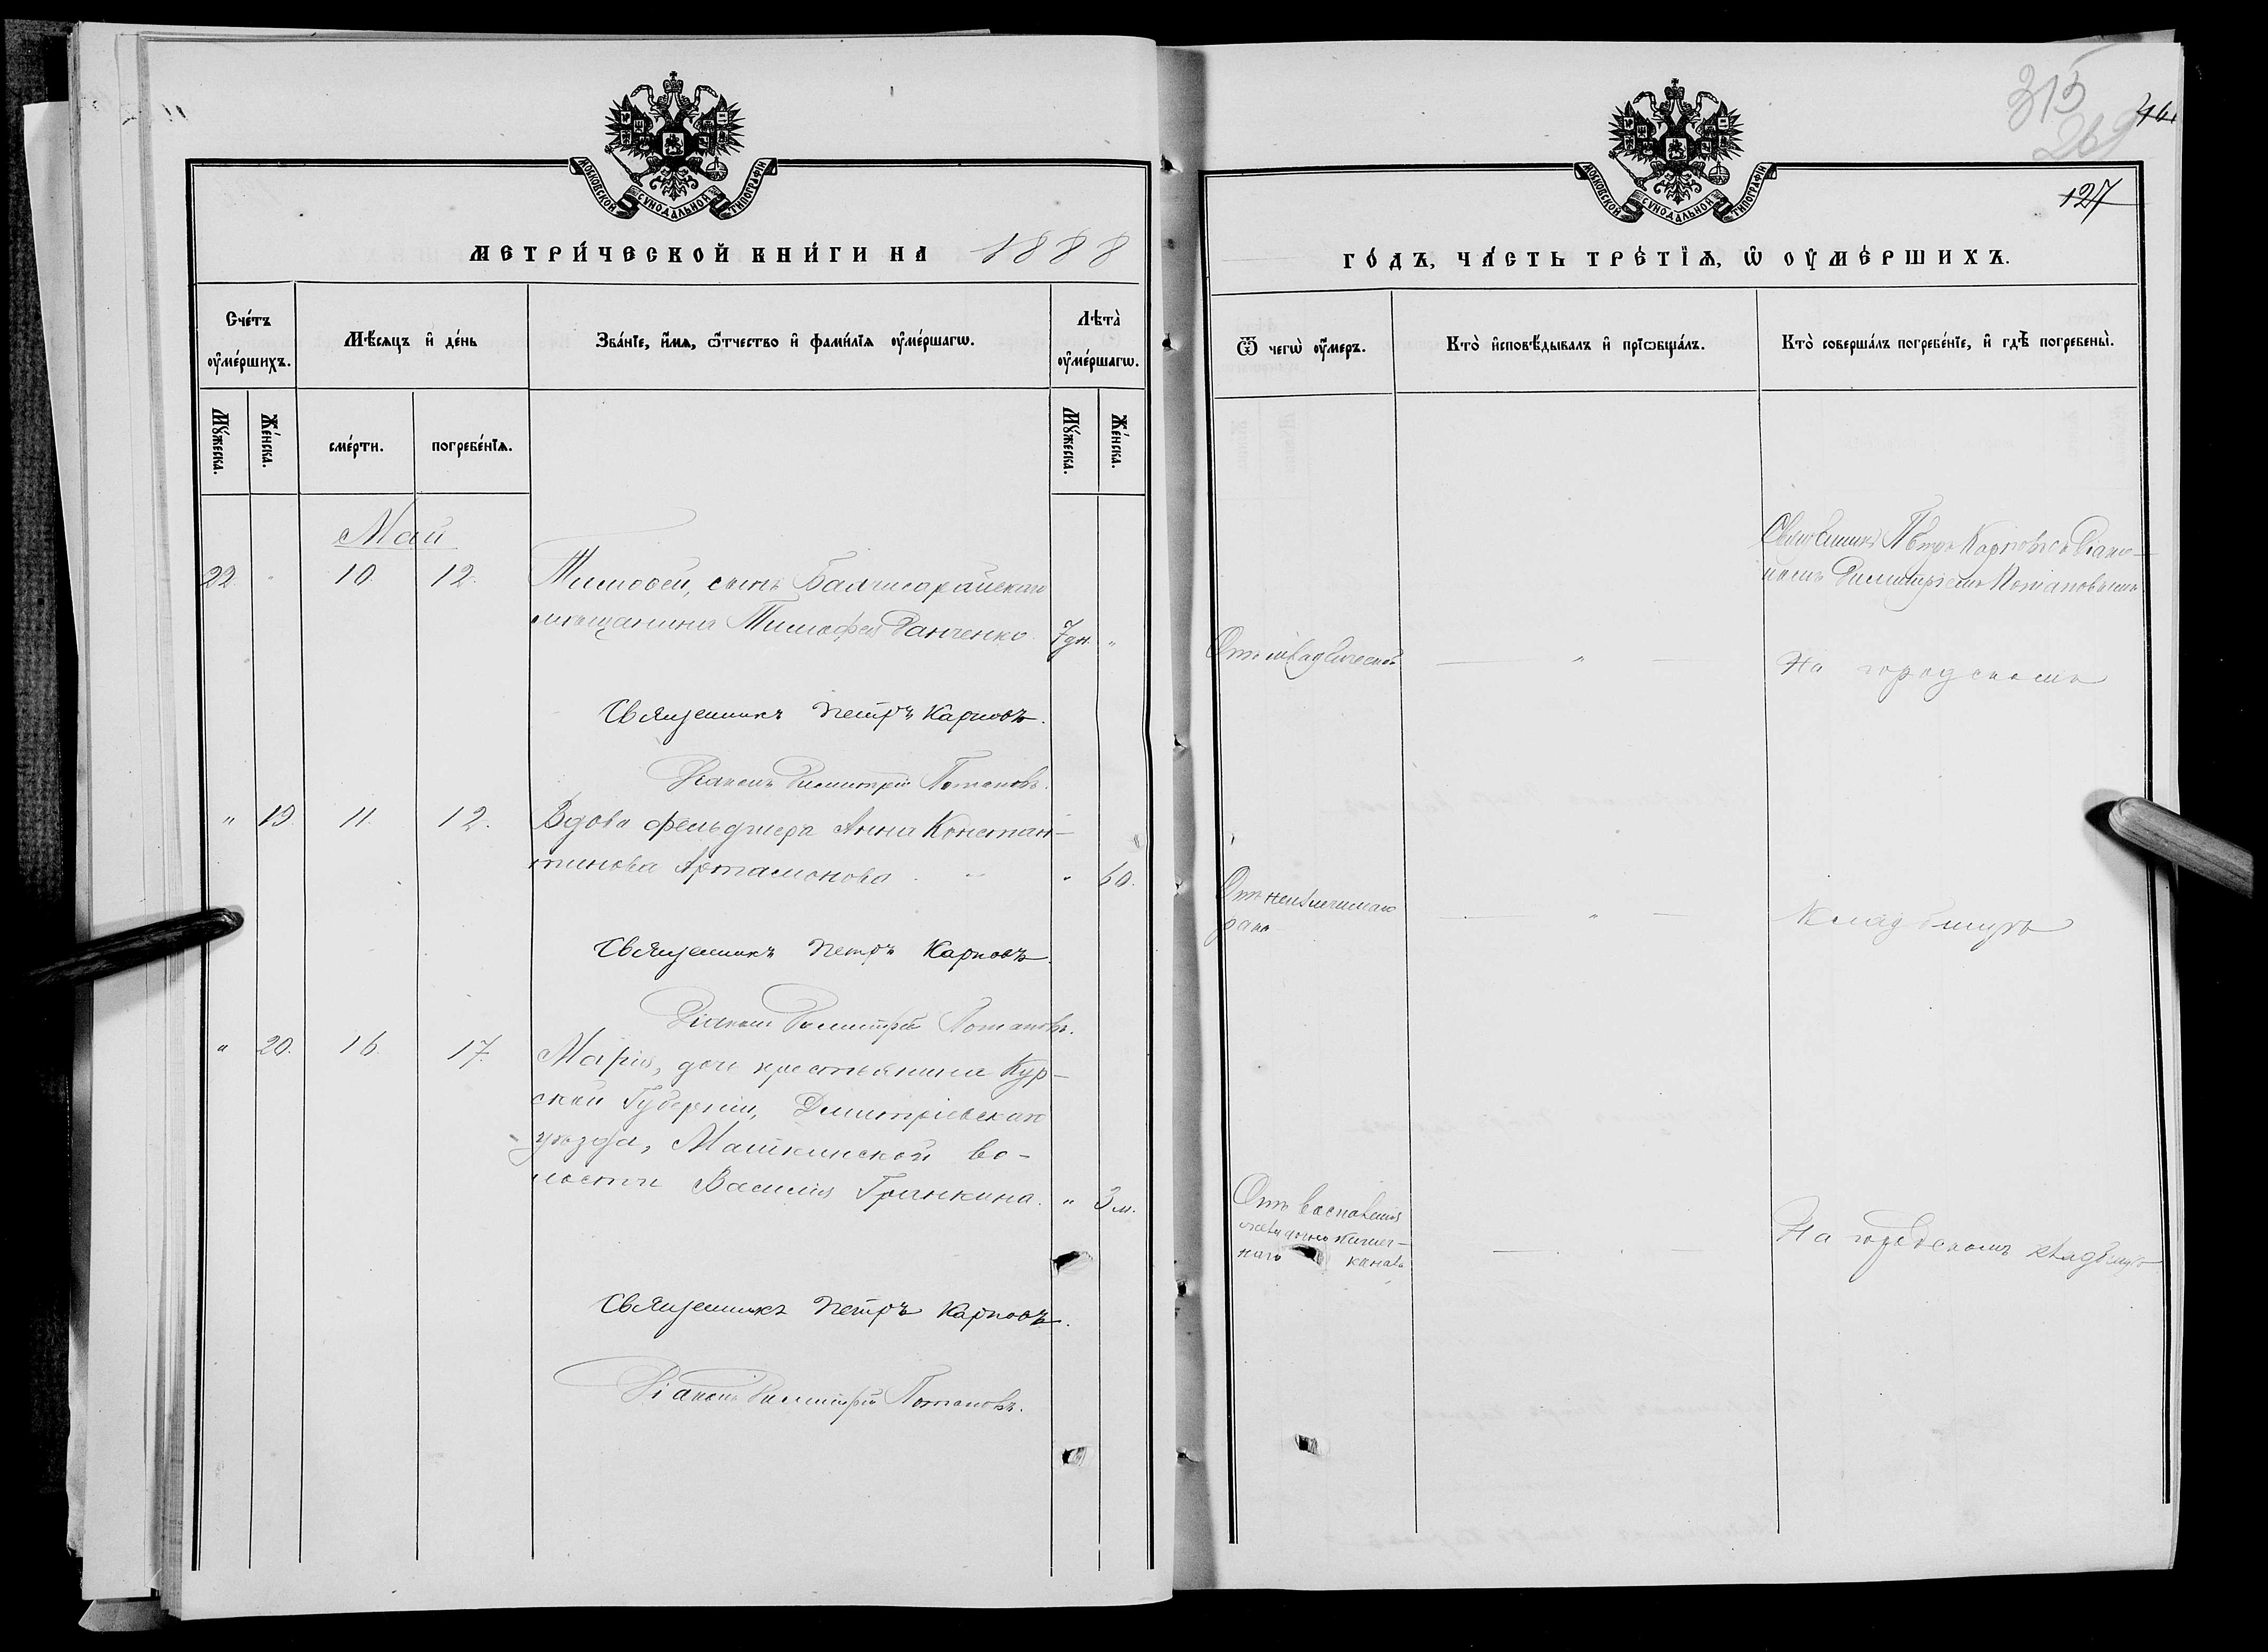 МОСКОВСКОЙ СУНОДАЛЬНОЙ ТИПОГРАФІИ
МЕТРИ́ЧЕСКОЙ КНИ́ГИ НА 1888
Сче́тъ ᲂу҆ме́ршихъ.
Мѣ́сѧцъ и҆ де́нь
Зва́нїе, и҆́мѧ, ѻ҆́тчество и҆ фами́лїѧ ᲂу҆ме́ршагѡ.
Лѣта̀ ᲂу҆ме́ршагѡ.
Мꙋ́жеска.
Же́нска.
сме́рти.
погребе́нїѧ.
Мꙋ́жеска.
Же́нска.
Май
22. " 10. 12. Тимофей, сынъ Бахчисарайскаго
мѣщанина Тимофея Ранченко 7 дн. "
Священникъ Петръ Карповъ.
Діаконъ Димитрій Потаповъ.
" 19. 11. 12. Вдова фельдшера Анна Констан-
тинова Артамонова " 60.
Священникъ Петръ Карповъ.
Діаконъ Димитрій Потаповъ.
" 20. 16. 17. Марія, дочь крестьянина Кур-
ской Губерніи, Дмитріевскаго
уѣзда, Машкинской во-
лости Василія Гранкина. " 3 м.
Священникъ Петръ Карповъ.
Діаконъ Димитрій Потаповъ.
315
269
127
МОСКОВСКОЙ СУНОДАЛЬНОЙ ТИПОГРАФІИ
ГО́ДЪ, ЧА́СТЬ ТРЕ́ТЇѦ, Ѡ҆ ОУ҆МЕ́РШИХЪ.
Ѿ чегѡ̀ ᲂу҆́меръ.
Кто̀ и҆сповѣ́дывалъ и҆ прїѡбща́лъ.
Кто̀ соверша́лъ погребе́нїе, и҆ гдѣ̀ погребены̀.
Священникъ Петръ Карповъ съ Діако-
номъ Димитріемъ Потаповымъ
На городскомъ
Отъ неизлечимаго
рака
кладбищѣ
Отъ воспаленія
желудочно кишеч-
наго канала
На городскомъ кладбищѣ